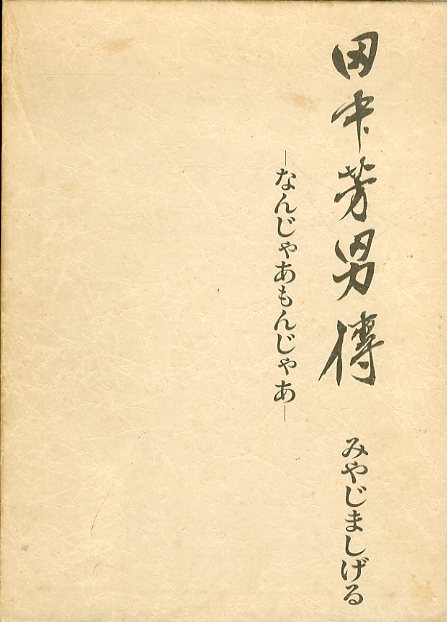 田中芳男傳
みやじましげる
―なんじゃあもんじゃあ―